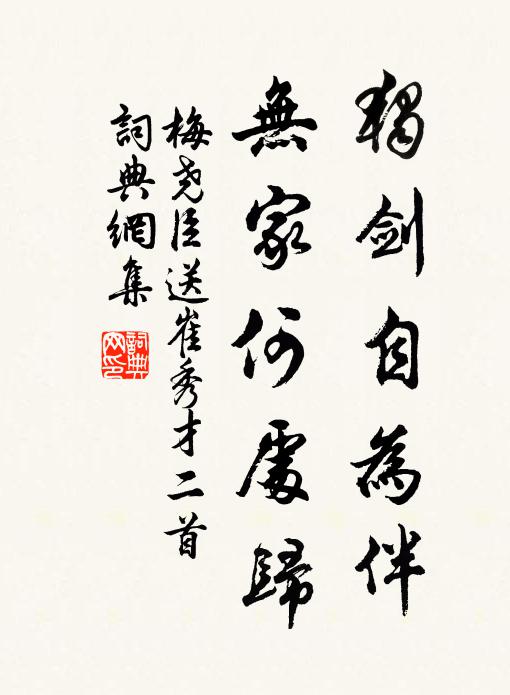 獨剑自為伴
無家何處歸
梅尧臣送崔秀才二首
詞典網集
詞典
网印